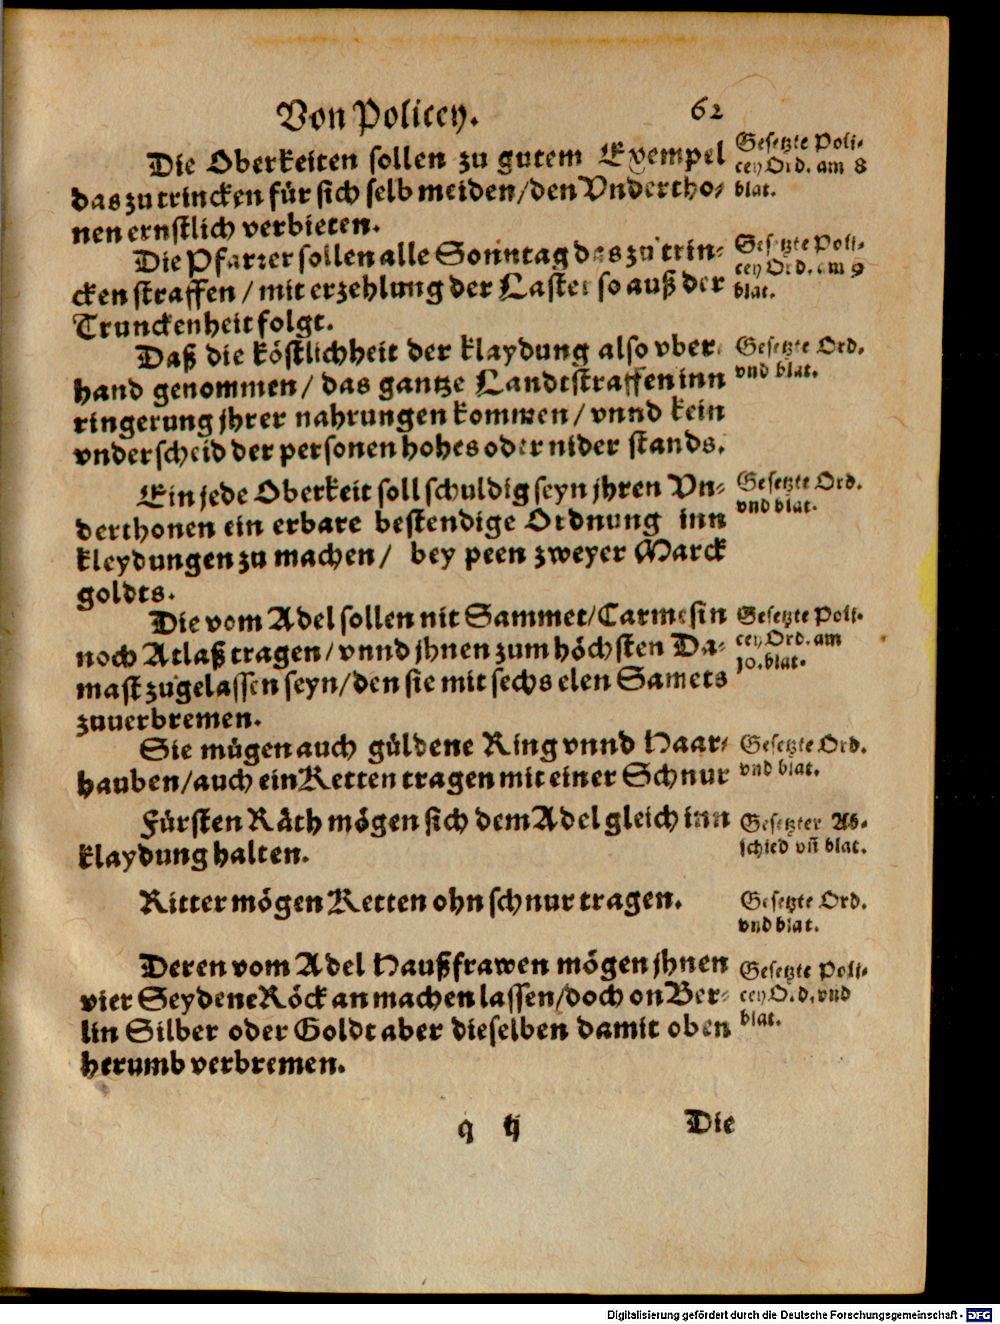 Von Policey. 62
Die Oberkeiten sollen zu gutem Exempel
das zutrincken für sich selb meiden/den Vndertho-
nen ernstlich verbieten.
Gesetzte Poli-
cey Ord. am 8
blat.
Die Pfarrer sollen alle Sonntag das zutrin-
cken straffen / mit erzehlung der Laster so auß der
Trunckenheit folgt.
Gesetzte Poli-
cey Ord. am 9
blat.
Daß die köstlichheit der klaydung also vber
hand genommen/ das gantze Landtstraffen inn
ringerung jhrer nahrungen kommen/ vnnd kein
vnderscheid der personen hohes oder nider stands.
Gesetzte Ord.
vnd blat.
Ein jede Oberkeit soll schuldig seyn jhren Vn-
derthonen ein erbare bestendige Ordnung inn
kleydungen zu machen/ bey peen zweyer Marck
goldts.
Gesetzte Ord.
vnd blat.
Die vom Adel sollen nit Sammet/Carmesin
noch Atlaß tragen/vnnd jhnen zum höchsten Da-
mast zugelassen seyn/den sie mit sechs elen Samets
zuuerbremen.
Gesetzte Poli-
cey Ord. am
10. blat.
Sie mügen auch güldene Ring vnnd Haar-
hauben/auch ein Ketten tragen mit einer Schnur
Gesetzte Ord.
vnd blat.
Fürsten Räth mögen sich dem Adel gleich inn
klaydung halten.
Gesetzter Ab-
schied vñ blat.
Ritter mögen Ketten ohn schnur tragen.
Gesetzte Ord.
vnd blat.
Deren vom Adel Haußfrawen mögen jhnen
vier Seydene Röck an machen lassen/doch on Ber-
lin Silber oder Goldt aber dieselben damit oben
herumb verbremen.
Gesetzte Poli-
cey Ord. vnd
blat.
q ij Die
Digitalisierung gefördert durch die Deutsche Forschungsgemeinschaft - DFG